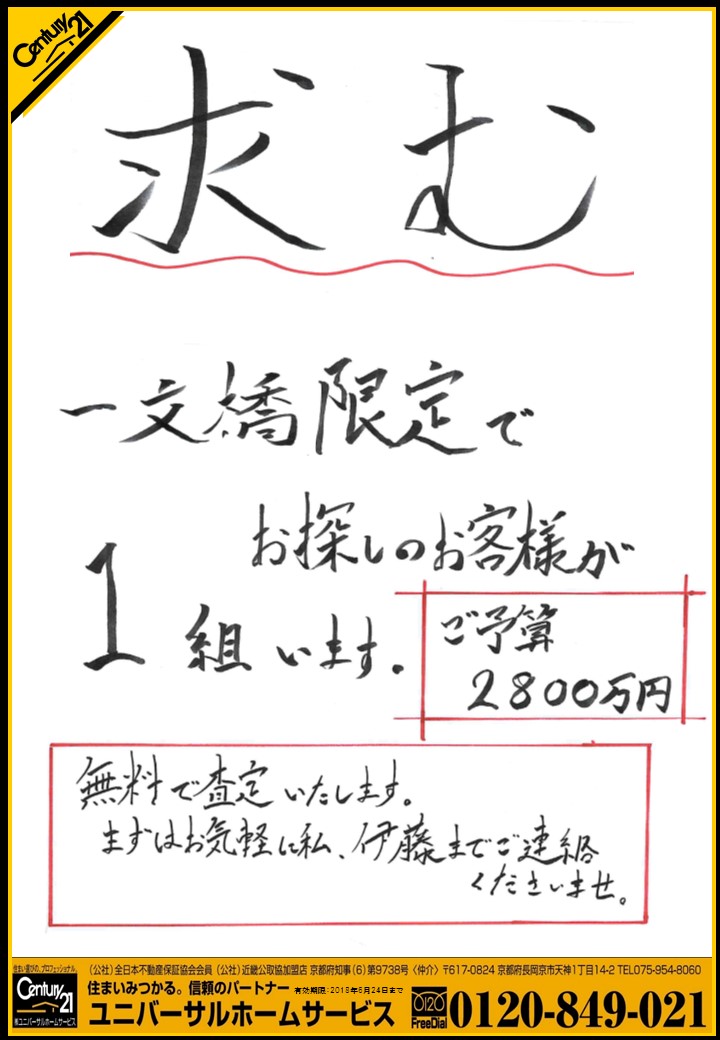 Century 21
求む
一文橋限定で
お探しのお客様が
1組います。
ご予算
2800万円
無料で査定いたします。
まずはお気軽に私、伊藤までご連絡
くださいませ。
住まい選びの、プロフェッショナル。
(公社)全日本不動産保証協会会員(公社)近畿公取協加盟店 京都府知事(6)第9738号〈仲介〉〒617-0824 京都府長岡京市天神1丁目14-2 TEL075-954-8060
Century 21
㈱ユニバーサルホームサービス
住まいみつかる。信頼のパートナー 有効期限:2018年6月24日まで
ユニバーサルホームサービス
0120
FreeDial 0120-849-021